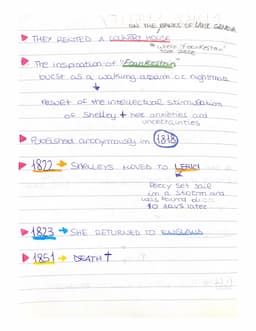 ON THE BANKS OF LAKE GENEVA
THEY RENTED A COUNTRY HOUSE
* where "Frankestein"
took place
The inspiration of "Frankestein"
burst as a walking dream or nightmare
result of the intellectual stimulation
of Shelley + her anxieties and
uncertainties
Published anonymously in 1818
1822 → SHELLEYS MOVED TO LERICI
Percy set sail
in a storm and
was found dead
10 days later
1823 → SHE RETURNED TO ENGLAND
1851 → DEATH †